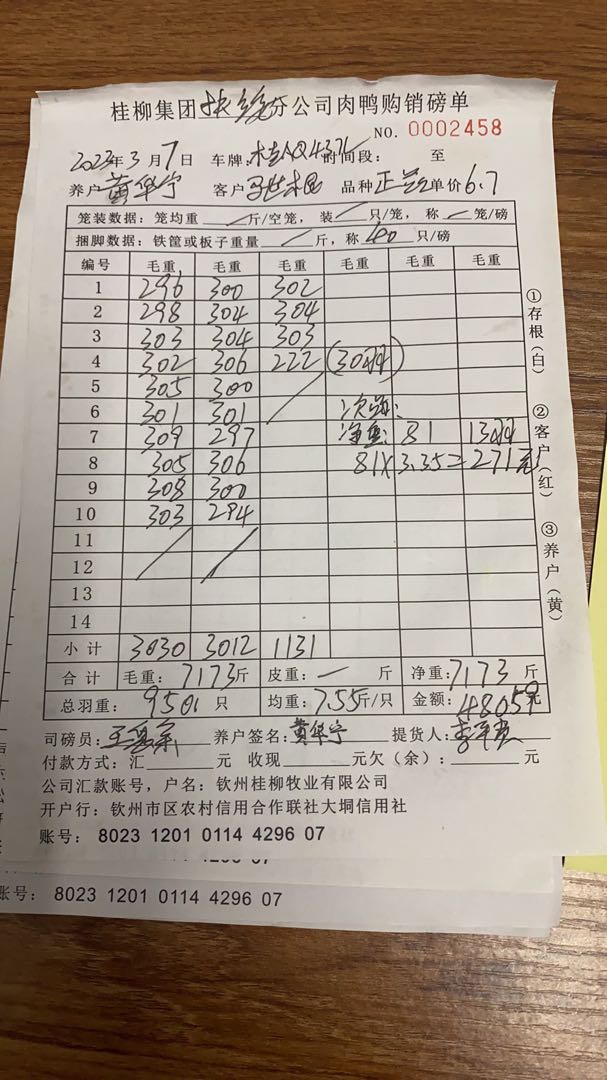 桂柳集团扶绥分公司肉鸭购销磅单
NO. 0002458
2023年3月7日 车牌: 时间段: 至
养户 黄华宁 客户 品种 正兰 单价 6.7
笼装数据: 笼均重 斤/空笼, 装 只/笼, 称 笼/磅
捆脚数据: 铁筐或板子重量 斤, 称 40 只/磅
编号 毛重 毛重 毛重 毛重 毛重 毛重
1 296 300 302
2 298 304 304
3 303 304 303
4 302 306 222 (30羽)
5 305 300
6 301 301 次鸭:
7 309 297 净重: 81 13羽
8 305 306 81×3.35=271元
9 308 300
10 303 294
11
12
13
14
小计 3030 3012 1131
合计 毛重: 7173斤 皮重: — 斤 净重: 7173 斤
总羽重: 950只 均重: 7.55斤/只 金额: 48059元
司磅员: 养户签名: 黄华宁 提货人:
付款方式: 汇 元 收现 元欠(余): 元
公司汇款账号, 户名: 钦州桂柳牧业有限公司
开户行: 钦州市区农村信用合作联社大垌信用社
账号: 8023 1201 0114 4296 07
①存根(白)
②客户(红)
③养户(黄)
账号: 8023 1201 0114 4296 07